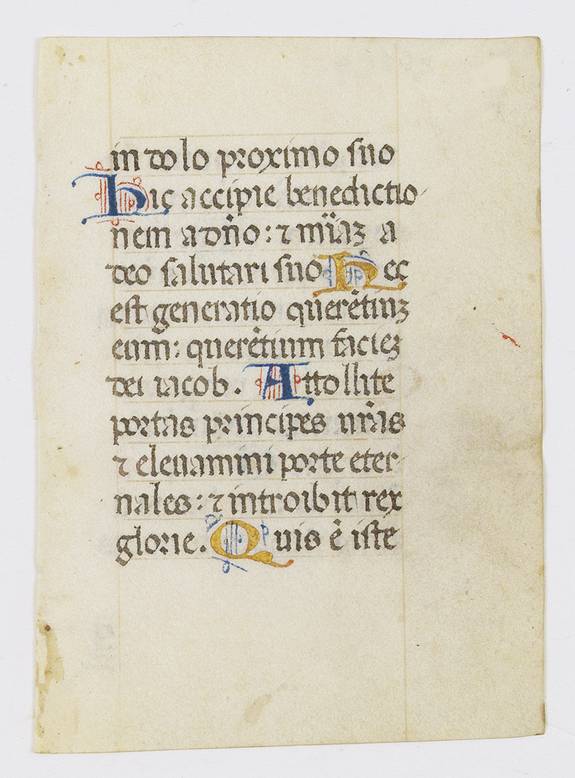 in dolo proximo suo
Hic accipie benedictio
nem a dño: ⁊ mĩaʒ a
deo salutari suo Hec
est generatio querẽtiuʒ
eum: querẽtium facieʒ
dei iacob. Attollite
portas principes ur̃as
⁊ eleuamini porte eter
nales: ⁊ introibit rex
glorie. Quis ẽ iste